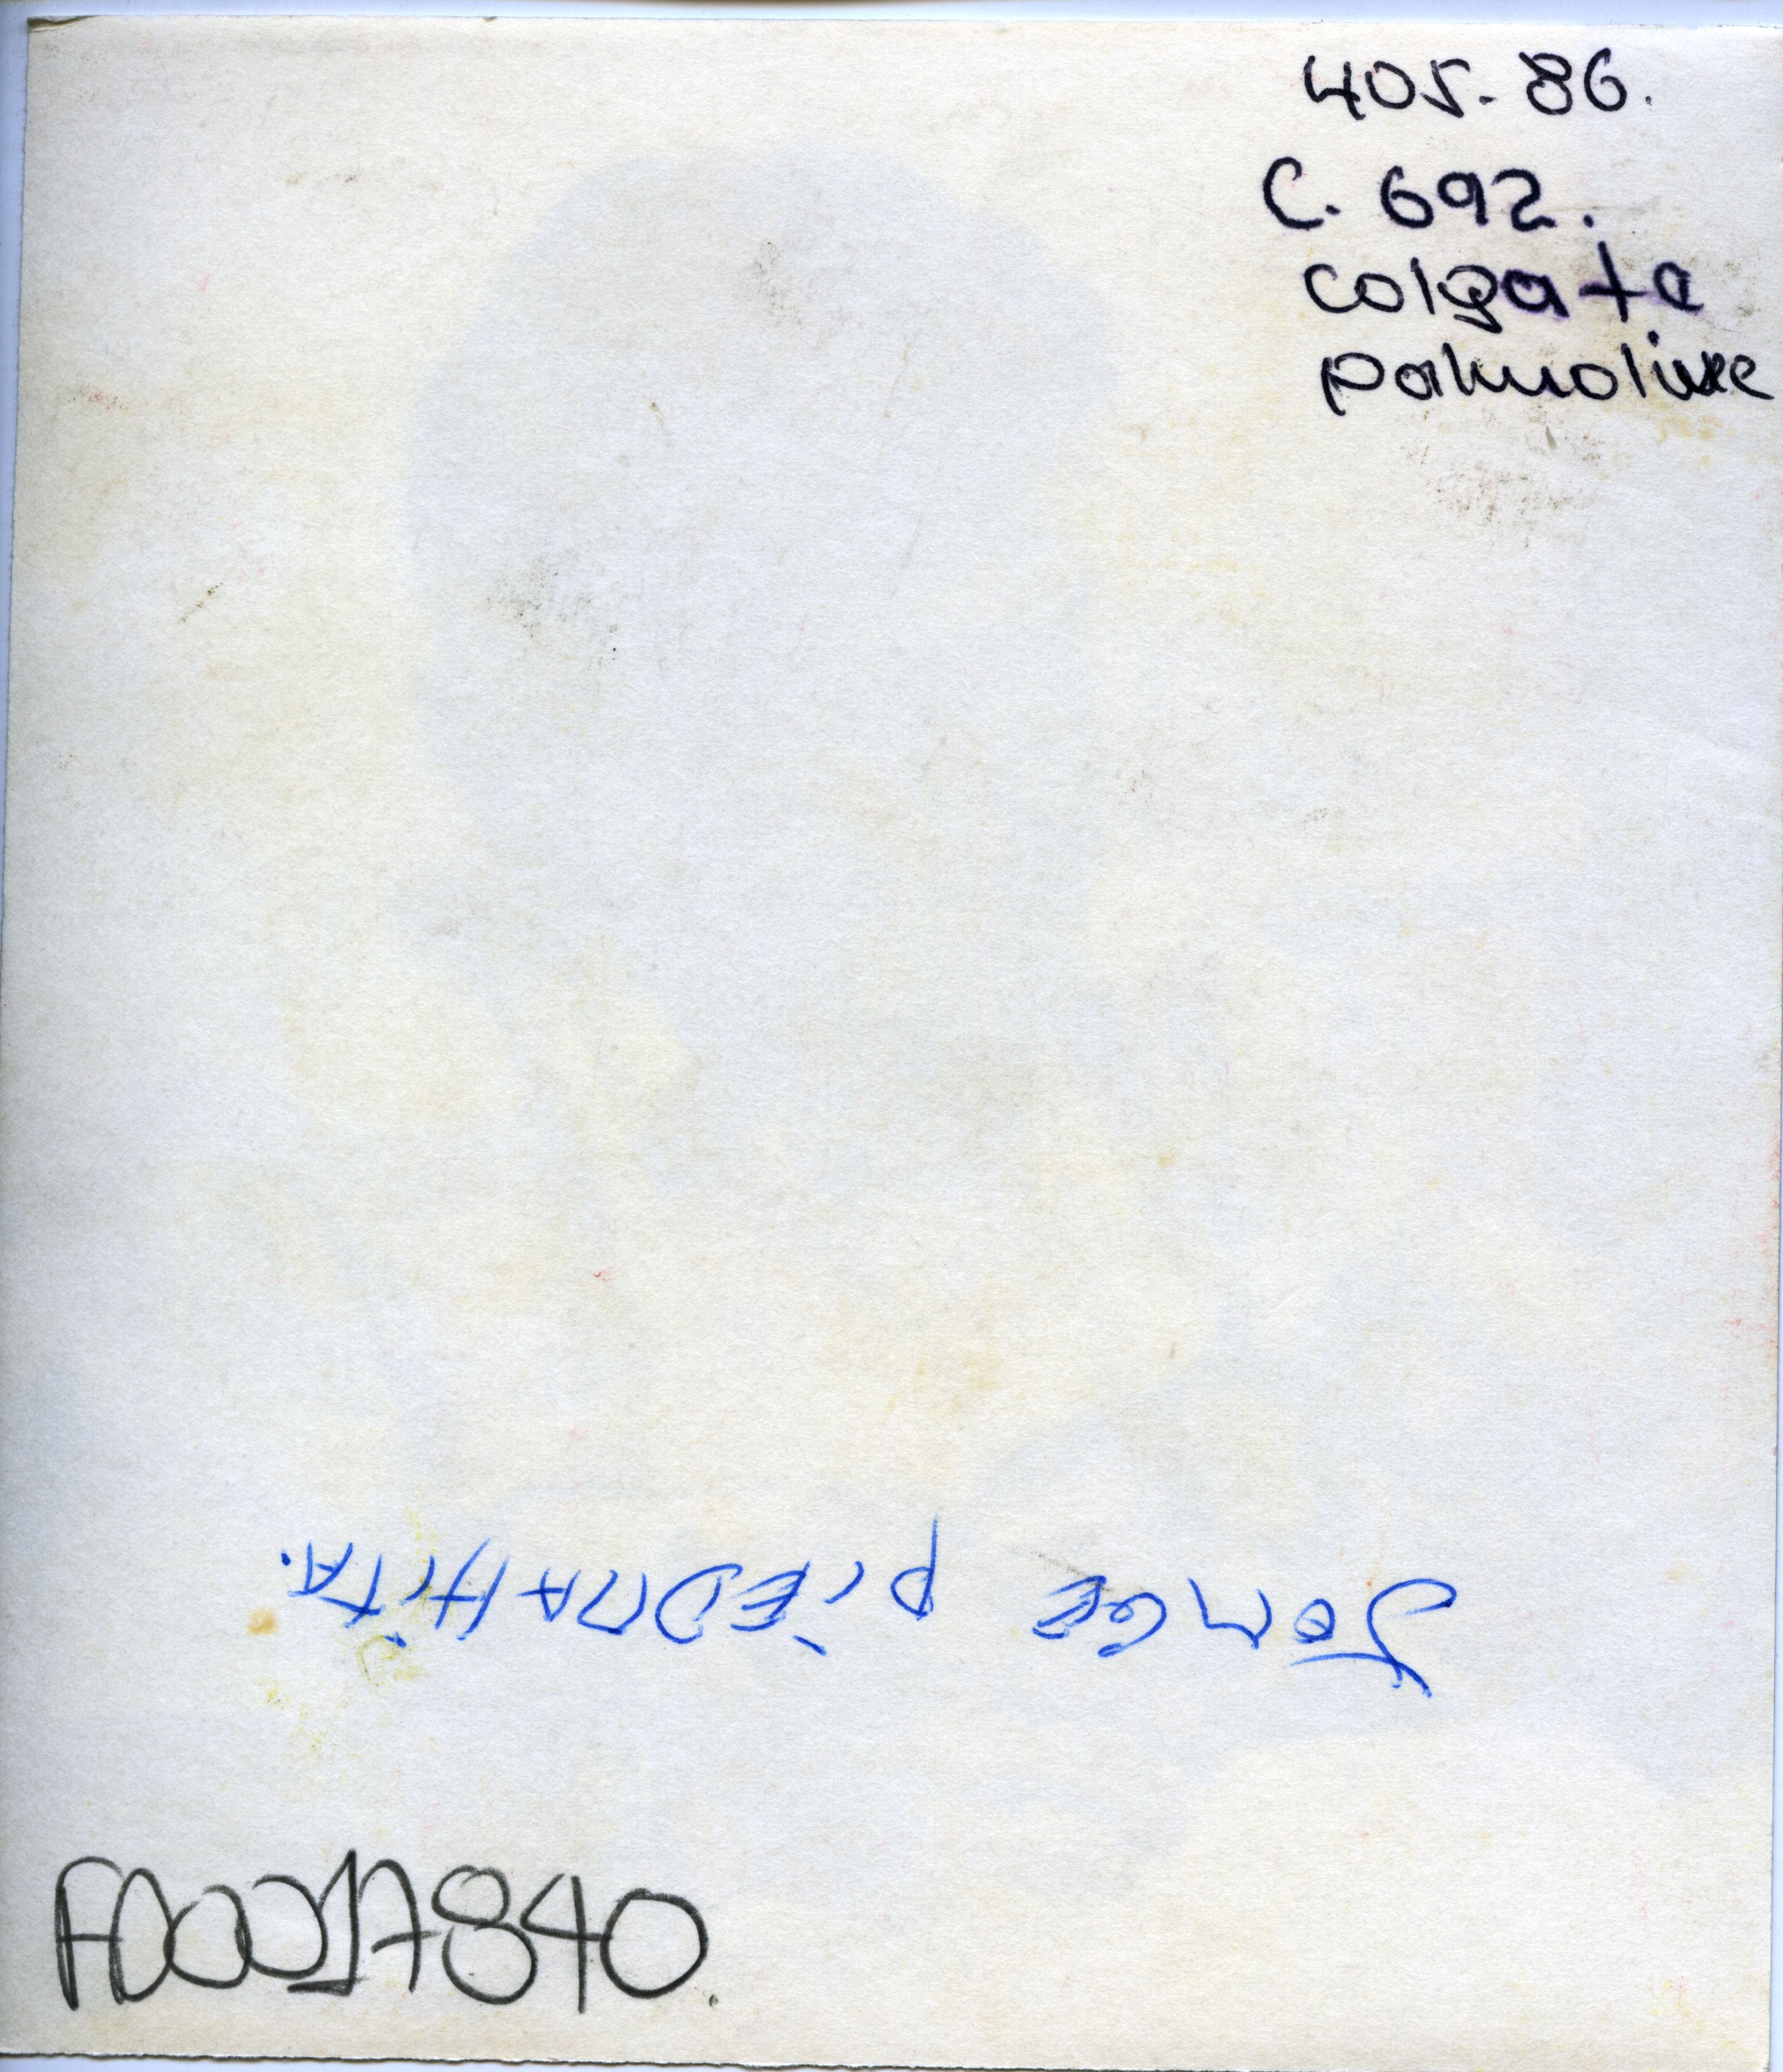 405-86.
C. 692.
colgate
palmolive
JORGE PIEDRAHITA.
F0017840.